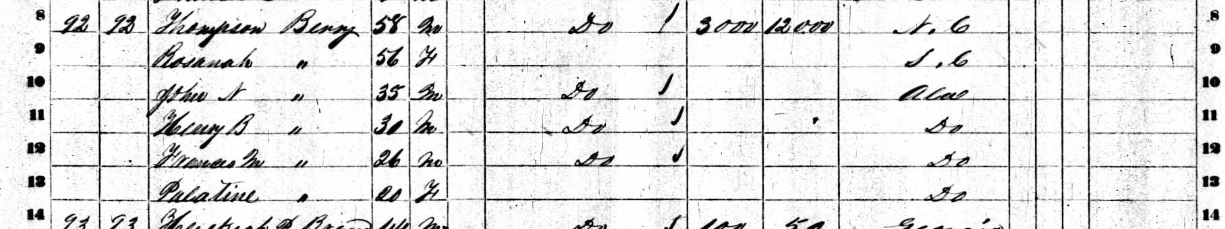 8 92 92 Thompson Berry 58 M Do 1 3000 12000 N. C 8
9 Rosanah " 56 F S. C 9
10 John N " 35 M Do 1 Ala 10
11 Henry B " 30 M Do 1 Do 11
12 Frances M " 26 M Do 1 Do 12
13 Palatine " 20 F Do 13
14 93 93 M Do 1 100 50 Georgia 14